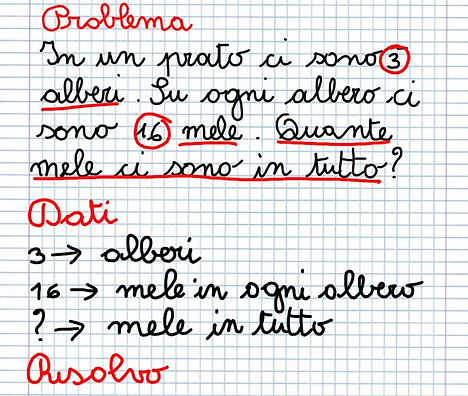 Problema
In un prato ci sono 3
alberi. Su ogni albero ci
sono 16 mele. Quante
mele ci sono in tutto?
Dati
3 → alberi
16 → mele in ogni albero
? → mele in tutto
Risolvo